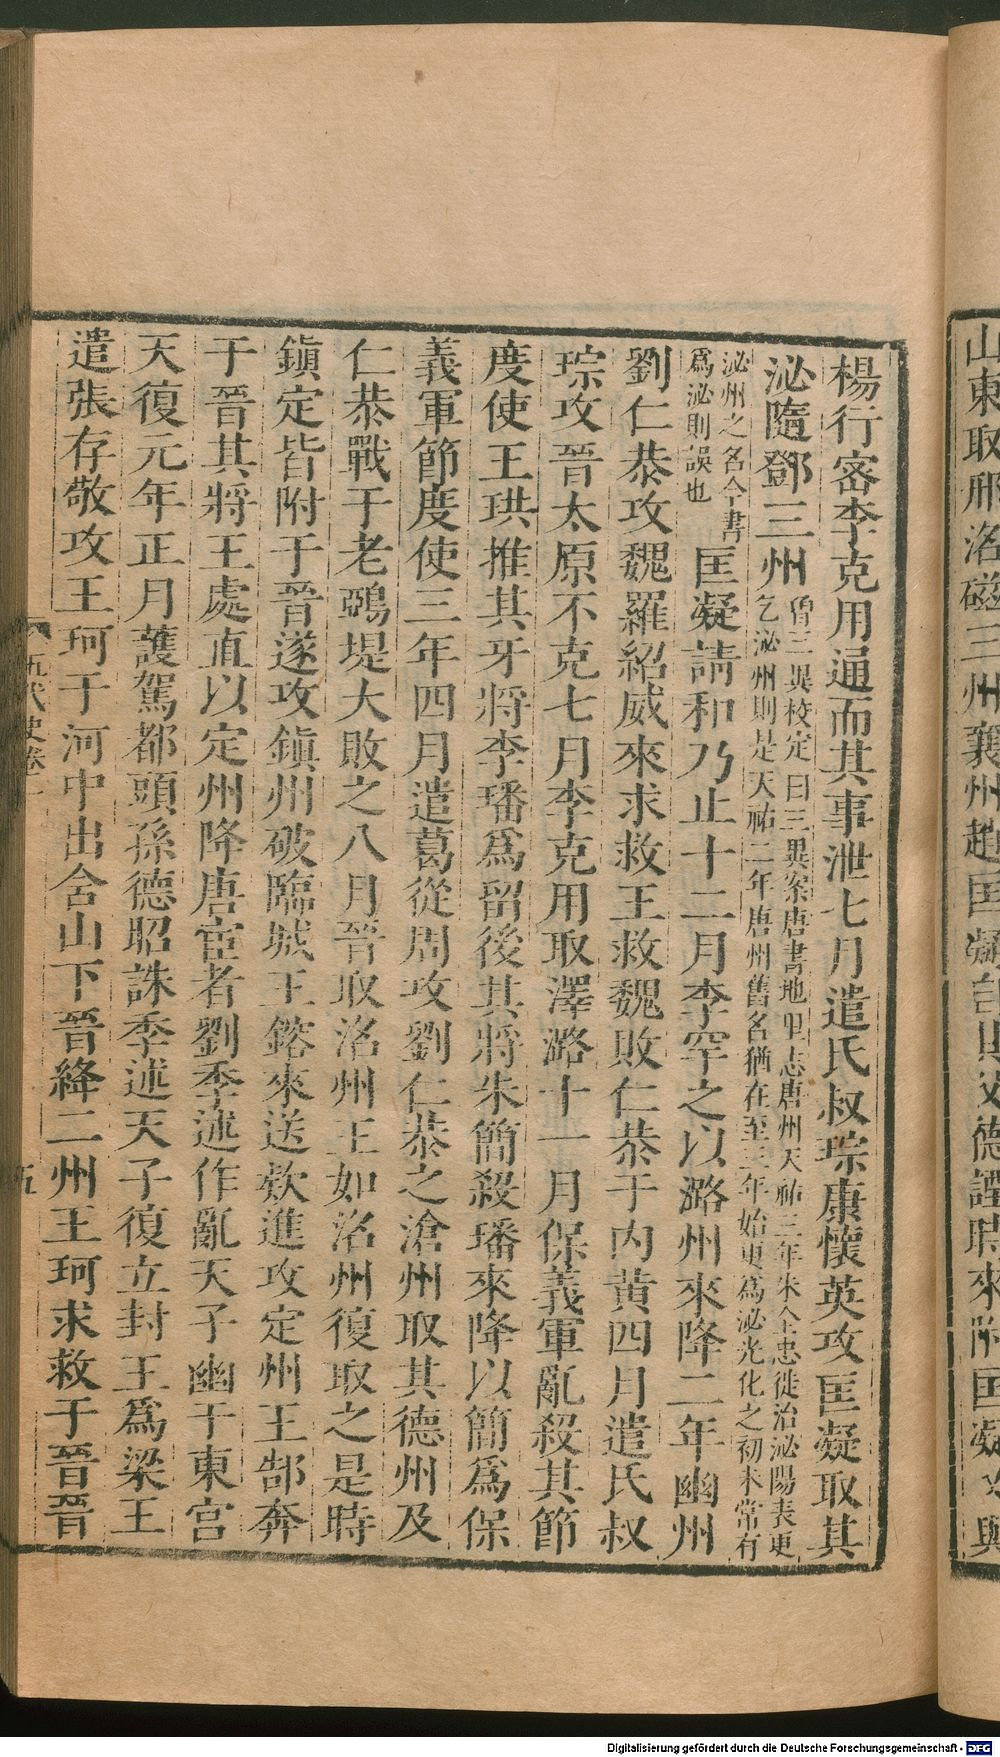 楊行密李克用通而其事泄七月遣氏叔琮康懷英攻匡凝取其
泌隨鄧三州曾三異校定曰三異案唐書地理志唐州天祐三年朱全忠徙治泌陽表更
乞泌州則是天祐二年唐州舊名猶在至三年始更爲泌光化之初未常有
泌州之名今書
爲泌則誤也
匡凝請和乃止十二月李罕之以潞州來降二年幽州
劉仁恭攻魏羅紹威來求救王救魏敗仁恭于内黃四月遣氏叔
琮攻晉太原不克七月李克用取澤潞十一月保義軍亂殺其節
度使王珙推其牙將李璠爲留後其將朱簡殺璠來降以簡爲保
義軍節度使三年四月遣葛從周攻劉仁恭之滄州取其德州及
仁恭戰于老鵶堤大敗之八月晉取洺州王如洺州復取之是時
鎮定皆附于晉遂攻鎮州破臨城王鎔來送欵進攻定州王郜奔
于晉其將王處直以定州降唐宦者劉季述作亂天子幽于東宮
天復元年正月護駕都頭孫德昭誅季述天子復立封王爲梁王
遣張存敬攻王珂于河中出含山下晉絳二州王珂求救于晉晉
五代史卷一
五
山東取邢洺磁三州襄州趙匡凝
德諲時來附匡凝又與
Digitalisierung gefördert durch die Deutsche Forschungsgemeinschaft - DFG